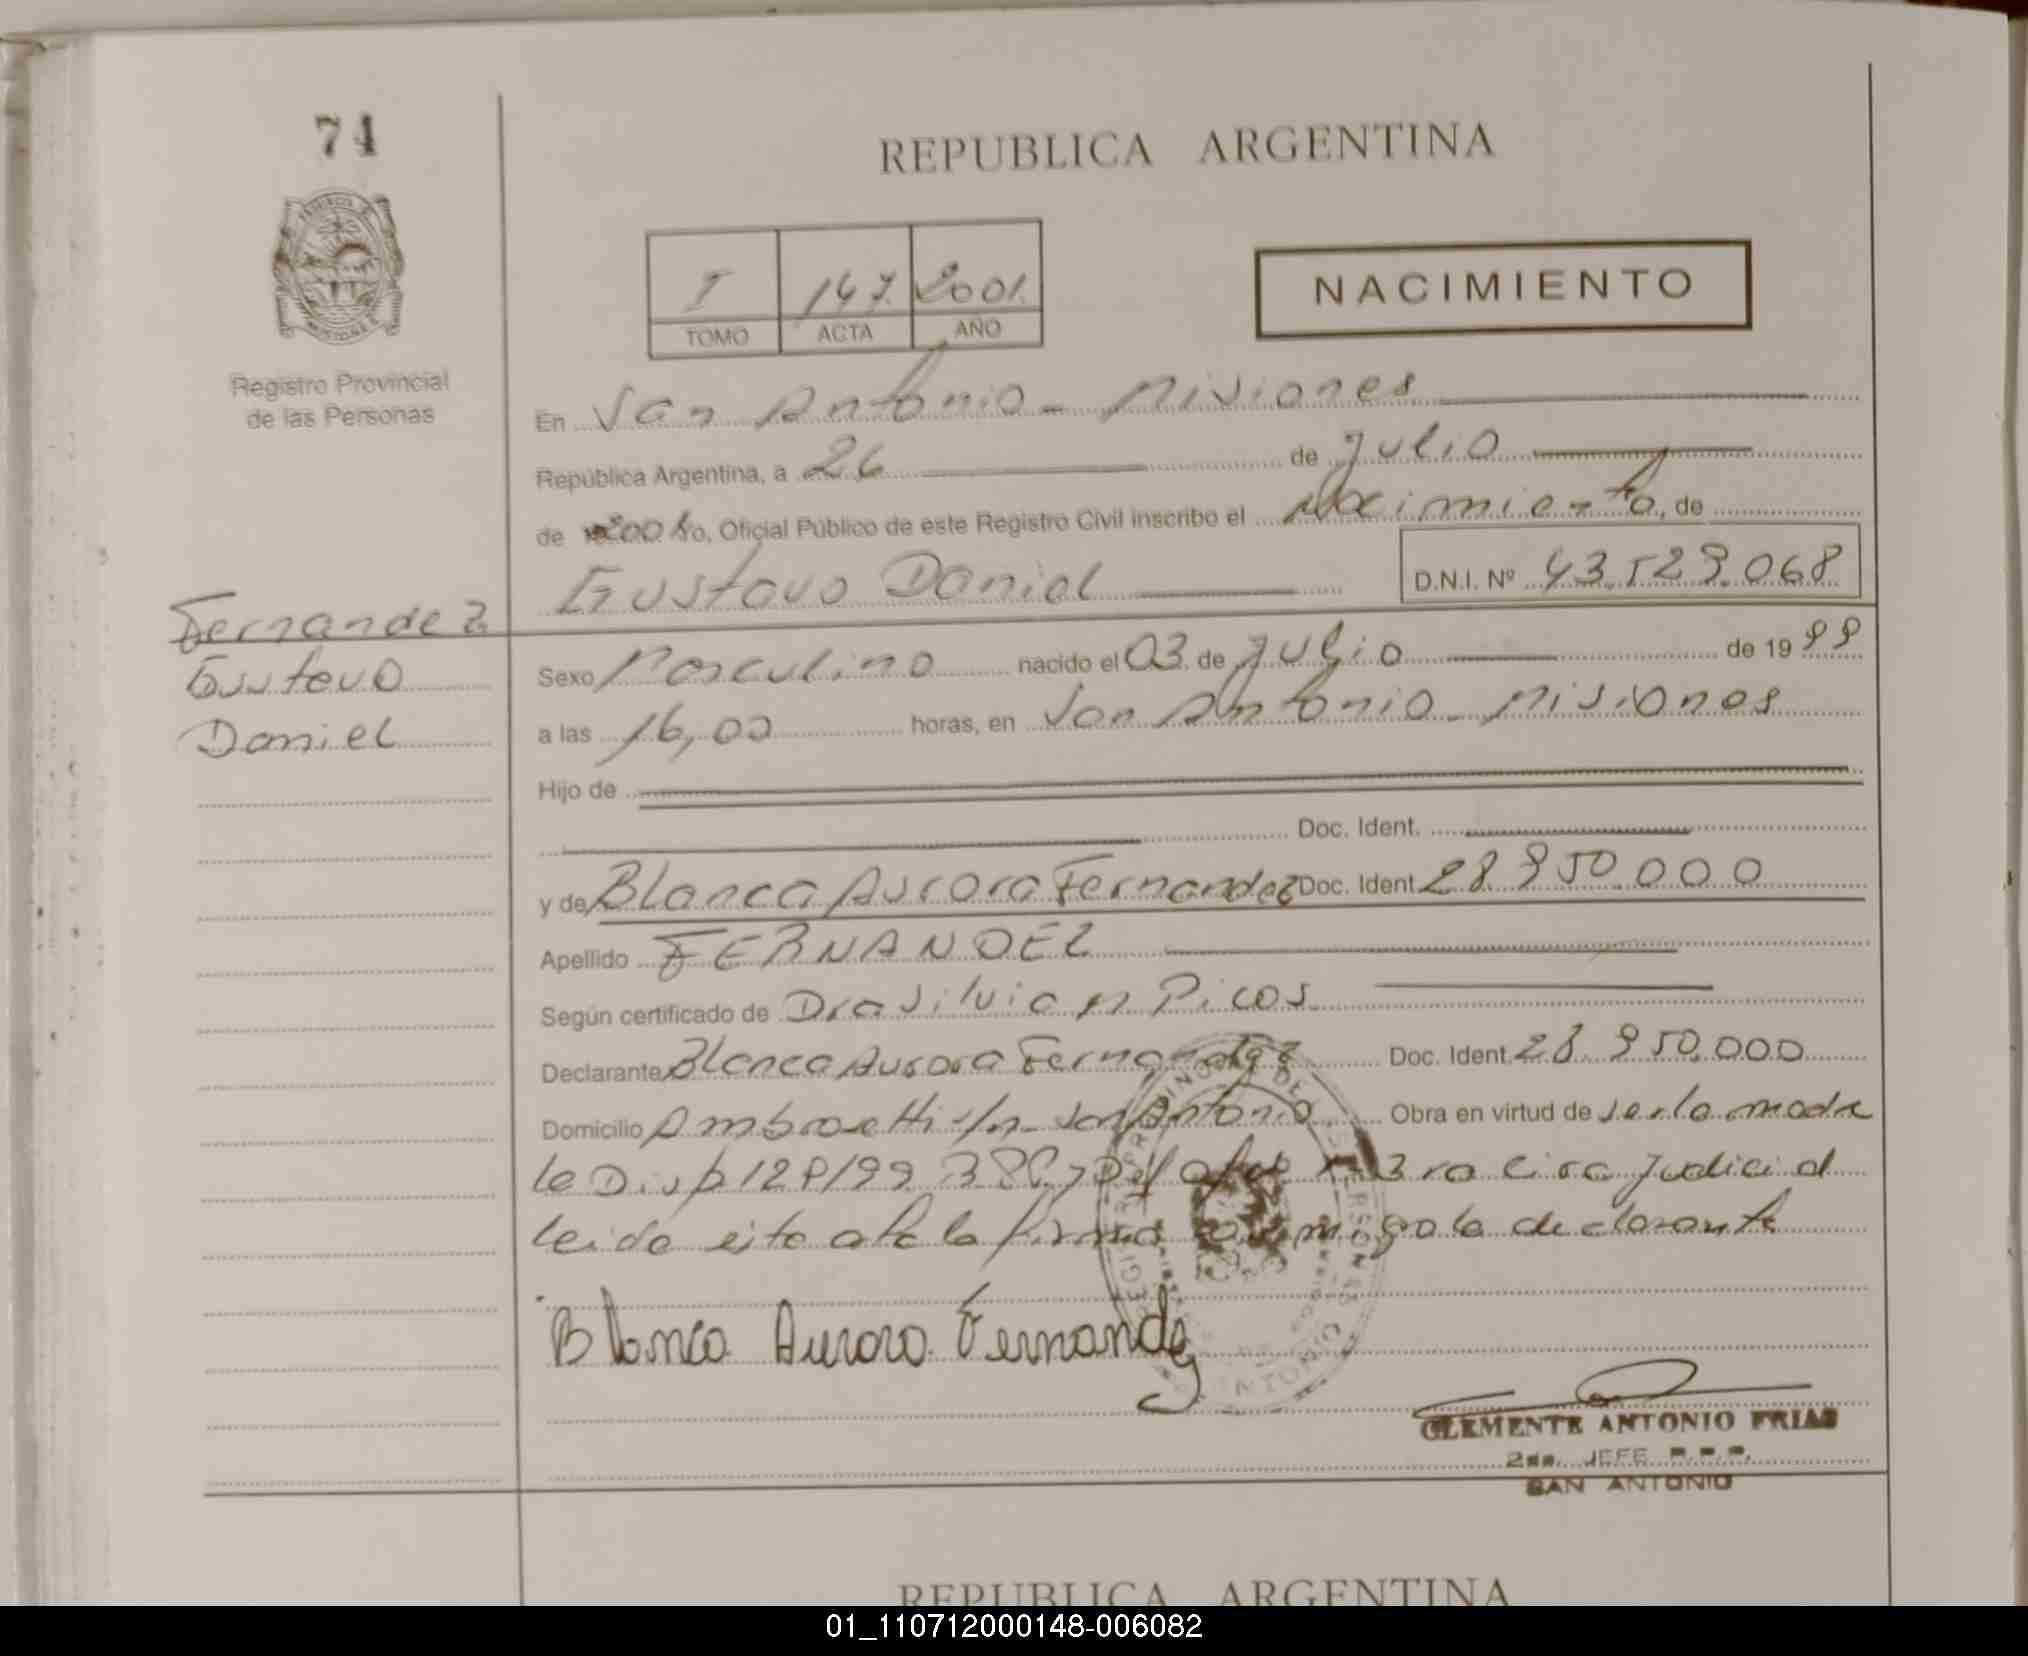 74
REPUBLICA ARGENTINA
I 147 2001
TOMO ACTA AÑO
NACIMIENTO
Registro Provincial
de las Personas
En San Antonio - Misiones
República Argentina, a 26 de Julio
de 2001 Yo, Oficial Público de este Registro Civil inscribo el Nacimiento, de
Gustavo Daniel D.N.I. Nº 43.529.068
Fernandez
Gustavo
Daniel
Sexo Masculino nacido el 03 de Julio de 1999
a las 16,00 horas, en San Antonio - Misiones
Hijo de
Doc. Ident.
y de Blanca Aurora Fernandez Doc. Ident. 28.950.000
Apellido FERNANDEZ
Según certificado de Dra Silvia n Picos
Declarante Blanca Aurora Fernandez Doc. Ident. 28.950.000
Domicilio Ambrosetti s/n - San Antonio Obra en virtud de ser la madre
le Disp 128/99 3ra circ Judicial
leida esta acta la firma conmigo la declarante
Blanca Aurora Fernandez
CLEMENTE ANTONIO FRIAS
2do. JEFE R.P.P.
SAN ANTONIO
REPUBLICA ARGENTINA
01_110712000148-006082